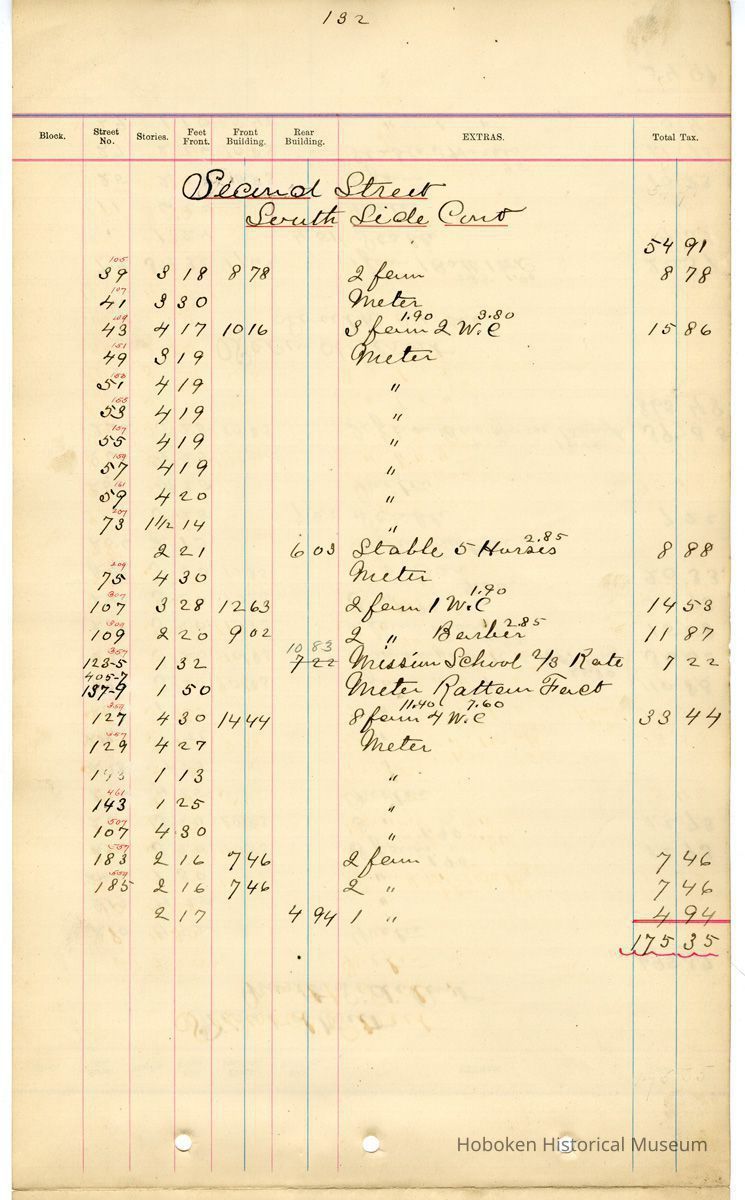 132
Block. Street No. Stories. Feet Front. Front Building. Rear Building. EXTRAS. Total Tax.
Second Street
South Side Cont
54 91
105
39 3 18 8 78 2 fam 8 78
107
41 3 30 Meter
109 1.90 3.80
43 4 17 10 16 3 fam 2 W.C 15 86
151
49 3 19 Meter
153
51 4 19 "
155
53 4 19 "
157
55 4 19 "
159
57 4 19 "
161
59 4 20 "
207
73 1 1/2 14 "
2.85
2 21 6 03 Stable 5 Horses 8 88
209
75 4 30 Meter
307 1.90
107 3 28 12 63 2 fam 1 W.C 14 53
309 2.85
109 2 20 9 02 2 " Barber 11 87
357 10 83
123-5 1 32 7 22 Mission School 2/3 Rate 7 22
405-7
137-9 1 50 Meter Rattam Fact
359 11.40 7.60
127 4 30 14 44 8 fam 4 W.C 33 44
357
129 4 27 Meter
1 13 "
461
143 1 25 "
507
107 4 30 "
557
183 2 16 7 46 2 fam 7 46
559
185 2 16 7 46 2 " 7 46
2 17 4 94 1 " 4 94
175 35
Hoboken Historical Museum